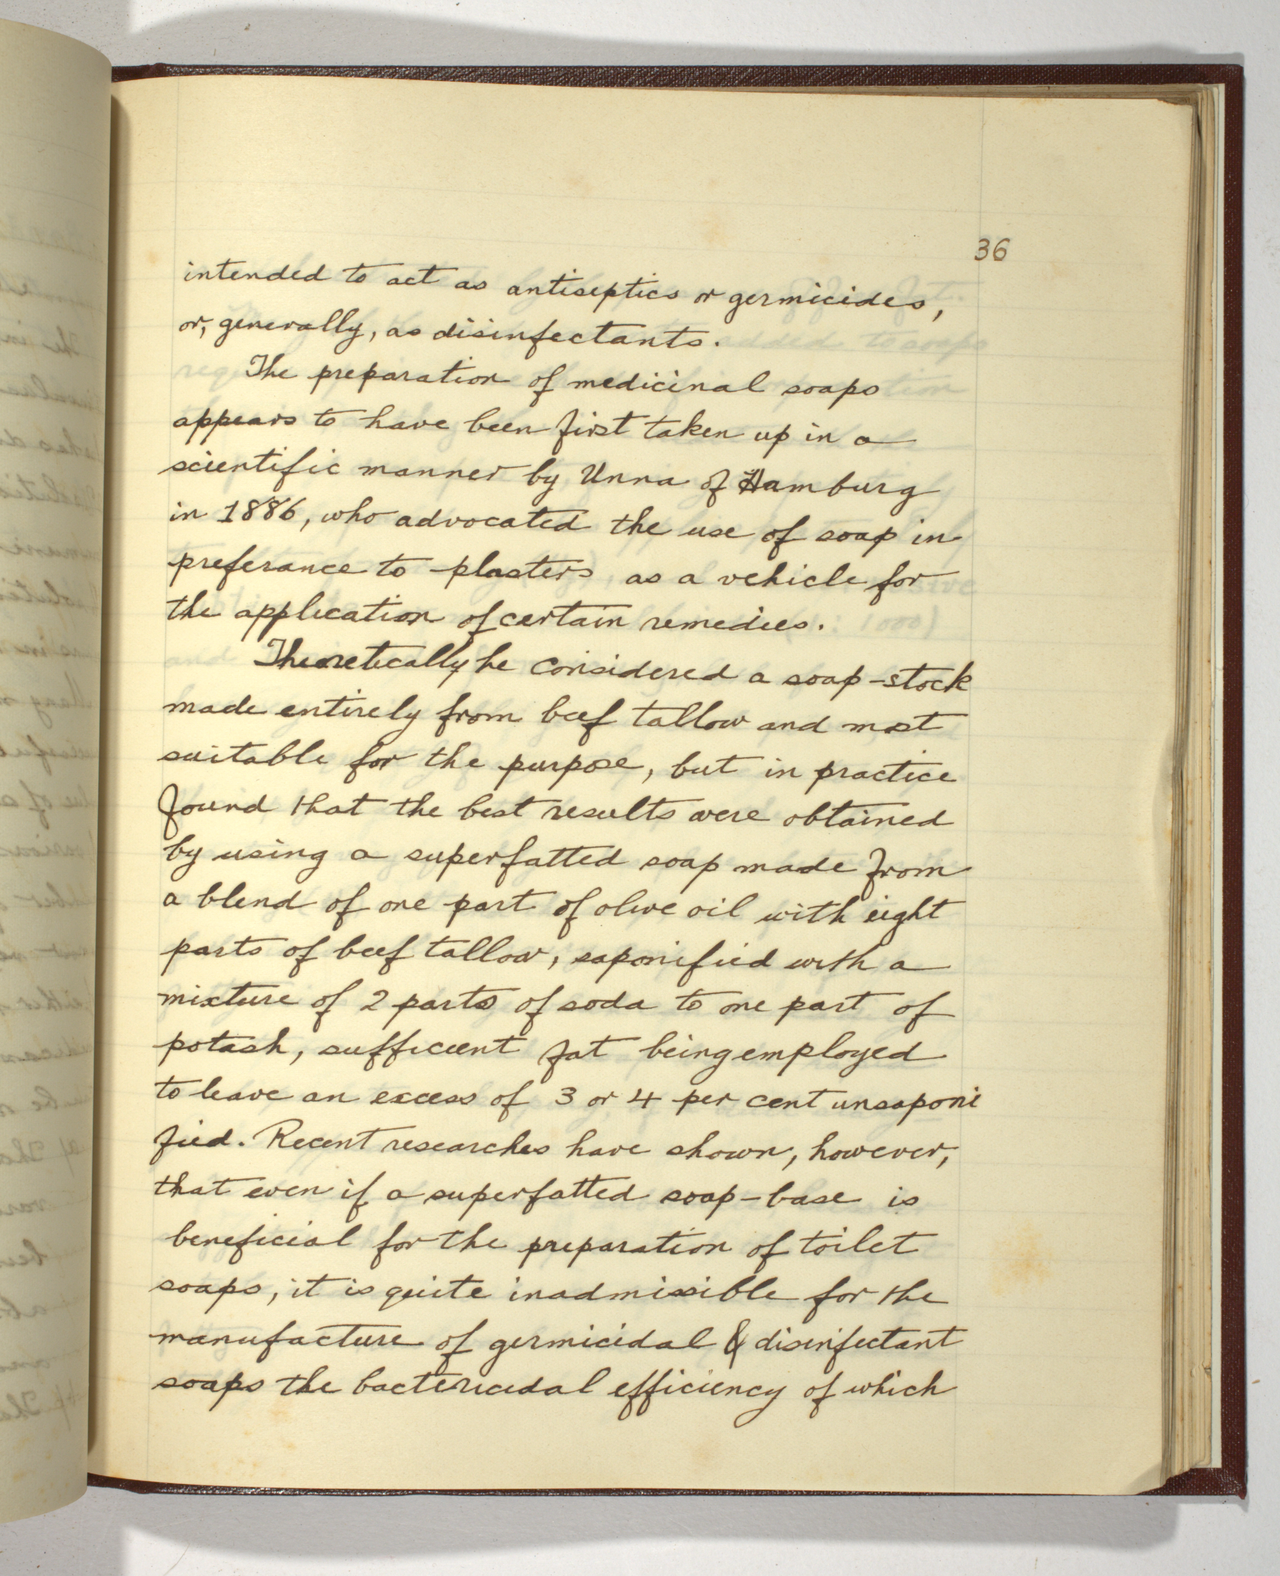 36
intended to act as antiseptics or germicides,
or, generally, as disinfectants.
The preparation of medicinal soaps
appears to have been first taken up in a
scientific manner by Unna of Hamburg
in 1886, who advocated the use of soap in
preferance to plasters as a vehicle for
the application of certain remedies.
Theoretically he considered a soap-stock
made entirely from beef tallow and most
suitable for the purpose, but in practice
found that the best results were obtained
by using a superfatted soap made from
a blend of one part of olive oil with eight
parts of beef tallow, saponified with a
mixture of 2 parts of soda to one part of
potash, sufficient fat being employed
to leave an excess of 3 or 4 per cent unsaponi
fied. Recent researches have shown, however,
that even if a superfatted soap-base is
beneficial for the preparation of toilet
soaps, it is quite inadmissible for the
manufacture of germicidal & disinfectant
soaps the bactericidal efficiency of which